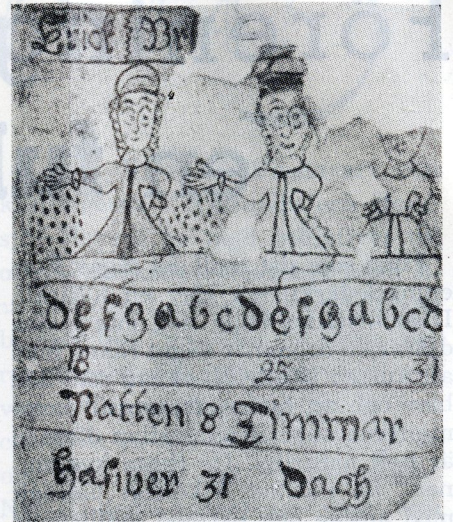 Erick
defgabcdefgabcd
18 25 31
Natten 8 Timmar
hafwer 31 dagh